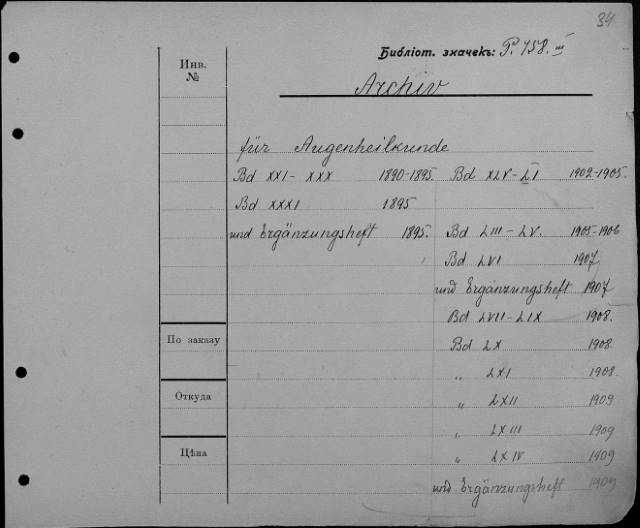 34
Библіот. значекъ: P. 758. III
Archiv
Инв.
№
für Augenheilkunde
Bd XXI - XXX 1890-1895
Bd XXXI 1895
und Ergänzungsheft 1895.
Bd XLV-LI 1902-1905.
Bd LIII - LV. 1905-1906
Bd LVI 1907
und Ergänzungsheft 1907
Bd LVII - LIX 1908.
Bd LX 1908.
„ LXI 1908.
„ LXII 1909
„ LXIII 1909
„ LXIV 1909
und Ergänzungsheft 1909
По заказу
Откуда
Цѣна